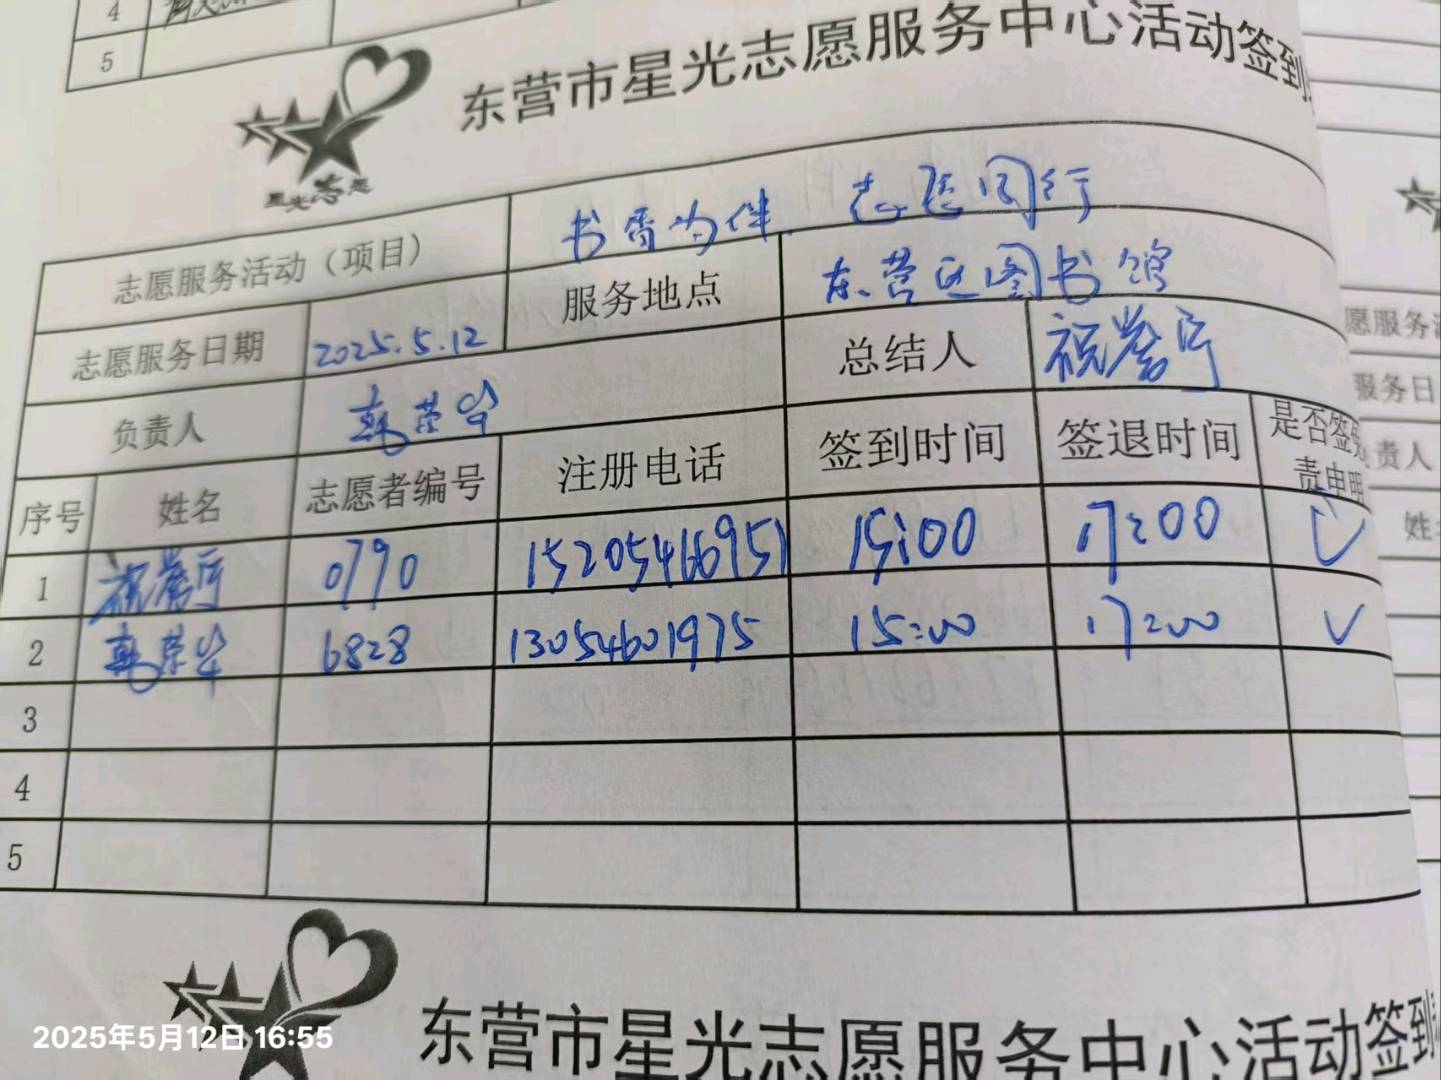 4
5
东营市星光志愿服务中心活动签到
星光志愿
志愿服务活动（项目） 书香为伴 志愿同行
志愿服务日期 2025.5.12 服务地点 东营区图书馆
负责人 韩荣华 总结人 祝誉厅
序号 姓名 志愿者编号 注册电话 签到时间 签退时间 是否签免责申明
1 祝誉厅 0790 15205466951 15:00 17:00 ✓
2 韩荣华 6828 13054601975 15:00 17:00 ✓
3
4
5
愿服务
服务日
责人
姓
东营市星光志愿服务中心活动签到
2025年5月12日 16:55